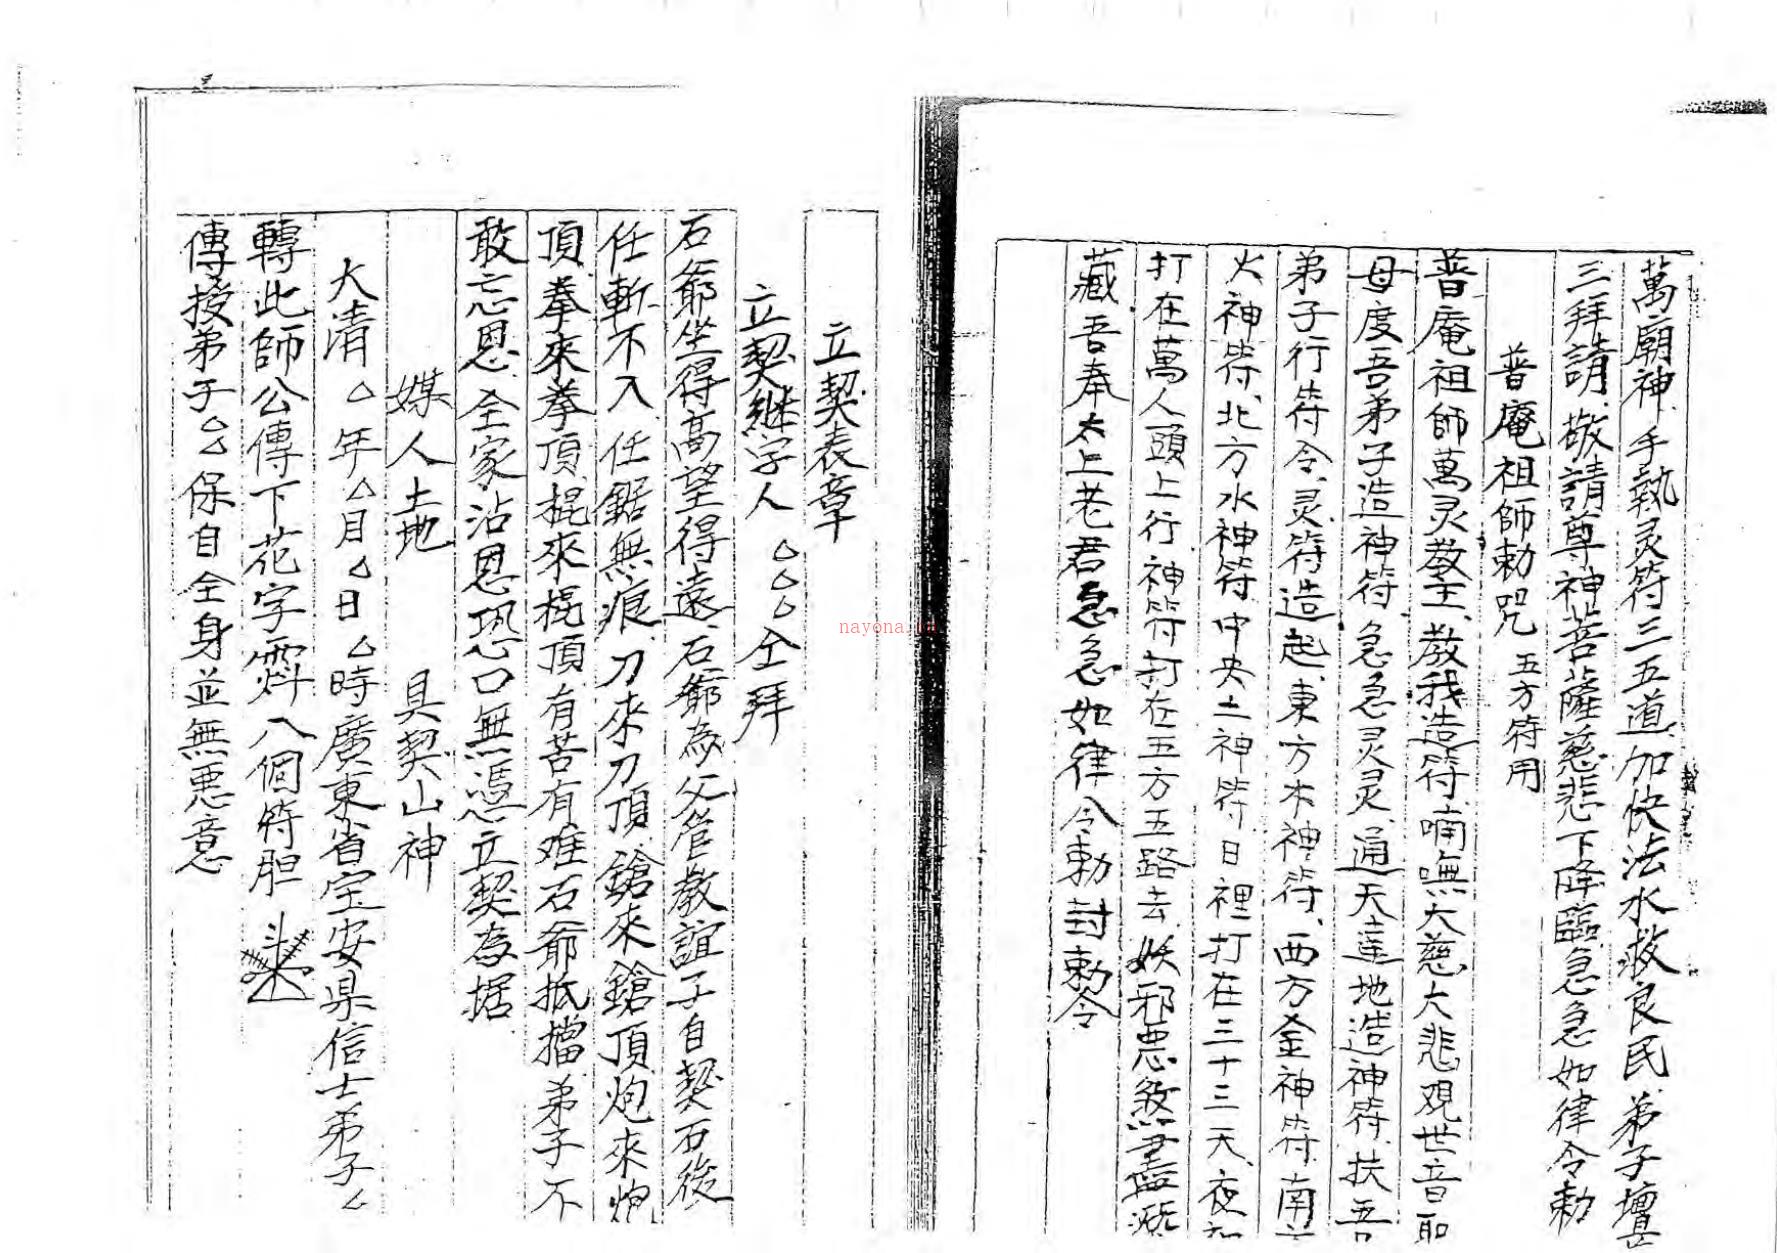 萬廟神手執灵符三五道加快法水救良民弟子壇
三拜請敬請尊神菩薩慈悲下降臨急急如律令勅
普庵祖師勅咒 五方符用
普庵祖師萬灵教主教我造符喃嘸大慈大悲观世音
母度吾弟子造神符急急灵灵通天達地造神符扶吾
弟子行符令灵符造起東方木神符西方金神符南
火神符北方水神符中央土神符日裡打在三十三天夜
打在萬人頭上行神符打在五方五路去妖邪恶煞盡
藏吾奉太上老君急急如律令勅封勅令
立契表章
立契継字人△△△仝拜
石爺坐得高望得遠石爺為父管教誼子自契石後
任斬不入任鋸無痕刀來刀頂鎗來鎗頂炮來炮
頂拳來拳頂棍來棍頂有苦有难石爺抵擋弟子不
敢忘恩全家沾恩恐口無憑立契為据
媒人土地 具契山神
大清△年△月△日△時廣東省宝安県信士弟子△
轉此師公傳下花字 八個符胆
傳授弟子△△保自全身並無恶意
nayona.cn